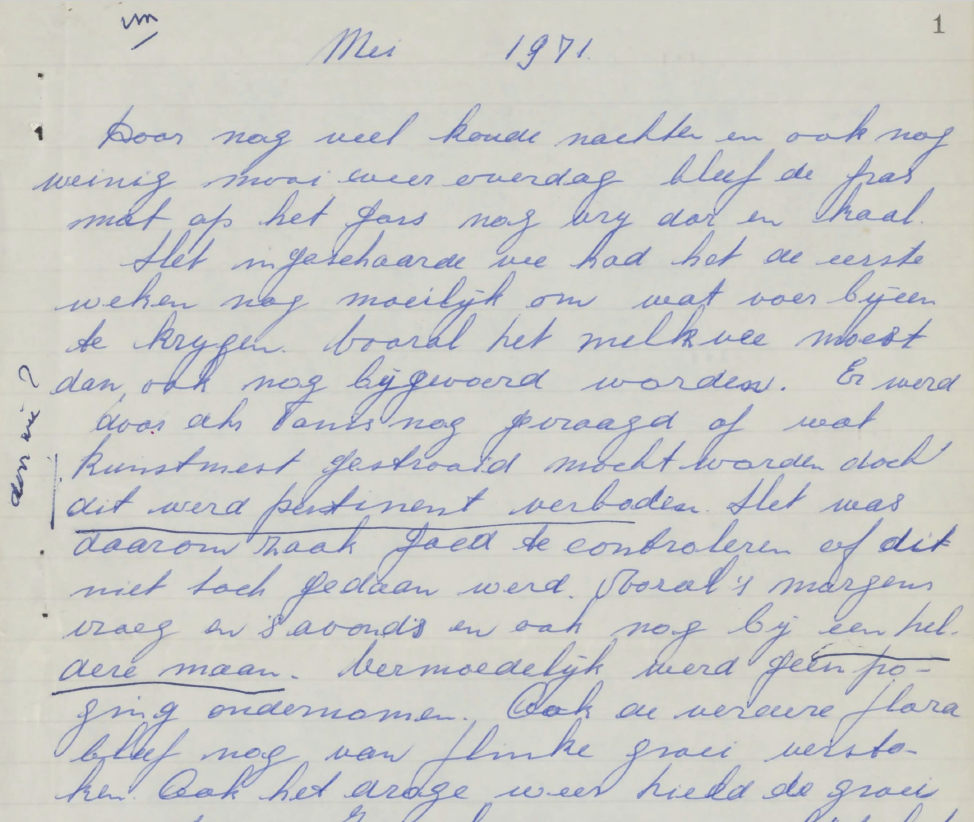 1
Mei 1971
Door nog veel koude nachten en ook nog
weinig mooi weer overdag bleef de gras
mat op het Gors nog vry dor en kaal.
Het ingeschaarde vee had het de eerste
weken nog moeilijk om wat voer bijeen
te krygen. Vooral het melkvee moest
dan ook nog bijgevoerd worden. Er werd
door dhr Tanis nog gevraagd of wat
kunstmest gestrooid mocht worden doch
dit werd pertinent verboden. Het was
daarom zaak goed te controleren of dit
niet toch gedaan werd. Vooral 's morgens
vroeg en 's avonds en ook nog bij een hel-
dere maan. Vermoedelijk werd geen po-
ging ondernomen. Ook de verdere flora
bleef nog van flinke groei versto-
ken. Ook het droge weer hield de groei
door wie?